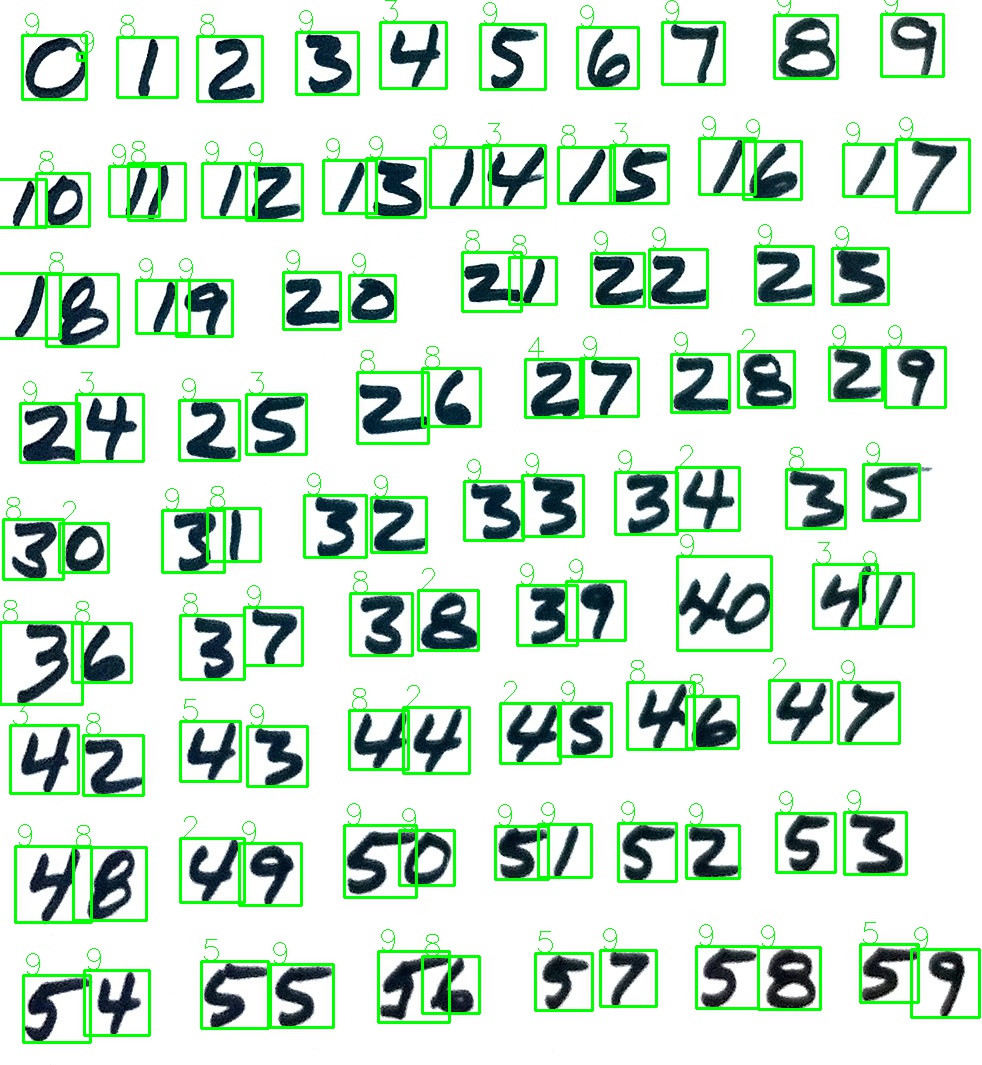 9 9 8 8 9 3 9 9 9 9 9
0 1 2 3 4 5 6 7 8 9
8 9 8 9 9 9 9 9 3 8 3 9 9 9 9
10 11 12 13 14 15 16 17
8 9 9 9 9 8 8 9 9 9 9
18 19 20 21 22 23
9 3 9 3 8 8 4 9 9 2 9 9
24 25 26 27 28 29
8 2 9 8 9 9 9 9 9 2 8 9
30 31 32 33 34 35
8 8 8 9 8 2 9 9 9 3 9
36 37 38 39 40 41
3 8 5 9 8 2 2 9 8 8 2 9
42 43 44 45 46 47
9 8 2 9 9 9 9 9 9 9 9 9
48 49 50 51 52 53
9 9 5 9 9 8 5 9 9 9 5 9
54 55 56 57 58 59